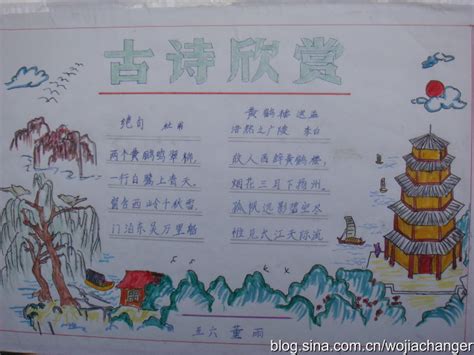 古诗欣赏
绝句 杜甫
两个黄鹂鸣翠柳,
一行白鹭上青天。
窗含西岭千秋雪,
门泊东吴万里船
黄鹤楼送孟
浩然之广陵 李白
故人西辞黄鹤楼,
烟花三月下扬州。
孤帆远影碧空尽
唯见长江天际流
五六 董雨
blog.sina.com.cn/wojiachanger